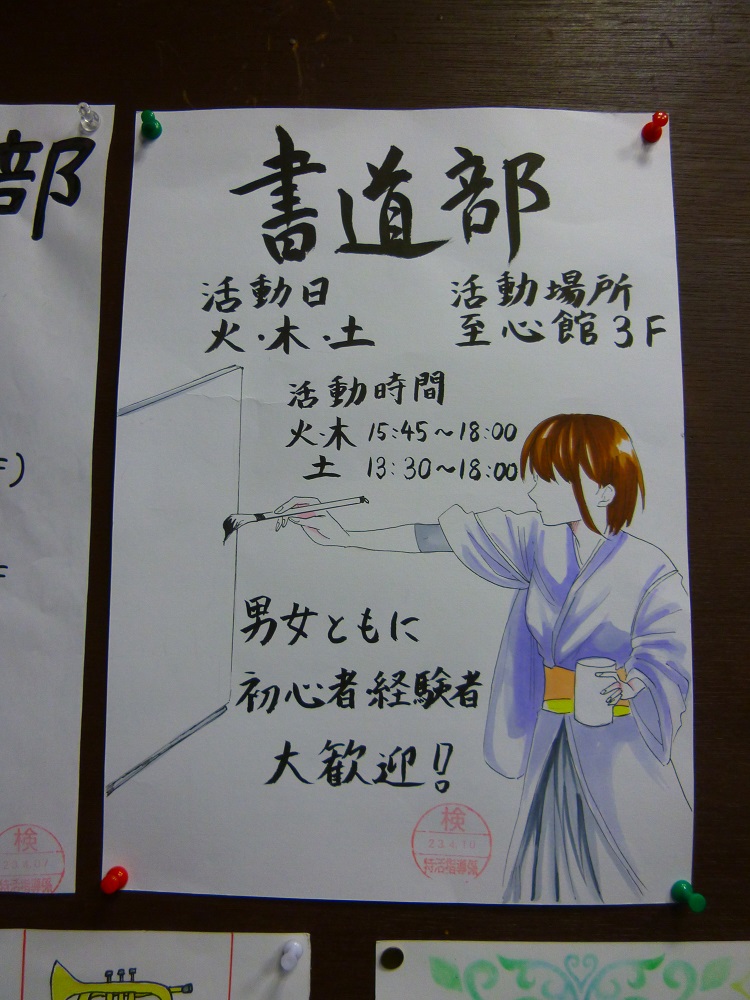 部
書道部
活動日
火・木・土
活動場所
至心館3F
活動時間
火・木 15:45〜18:00
土 13:30〜18:00
男女ともに
初心者・経験者
大歓迎!!
検
23.4.07
検
23.4.10